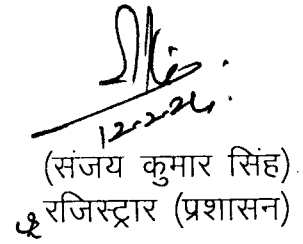 12.2.26
(संजय कुमार सिंह)
रजिस्ट्रार (प्रशासन)